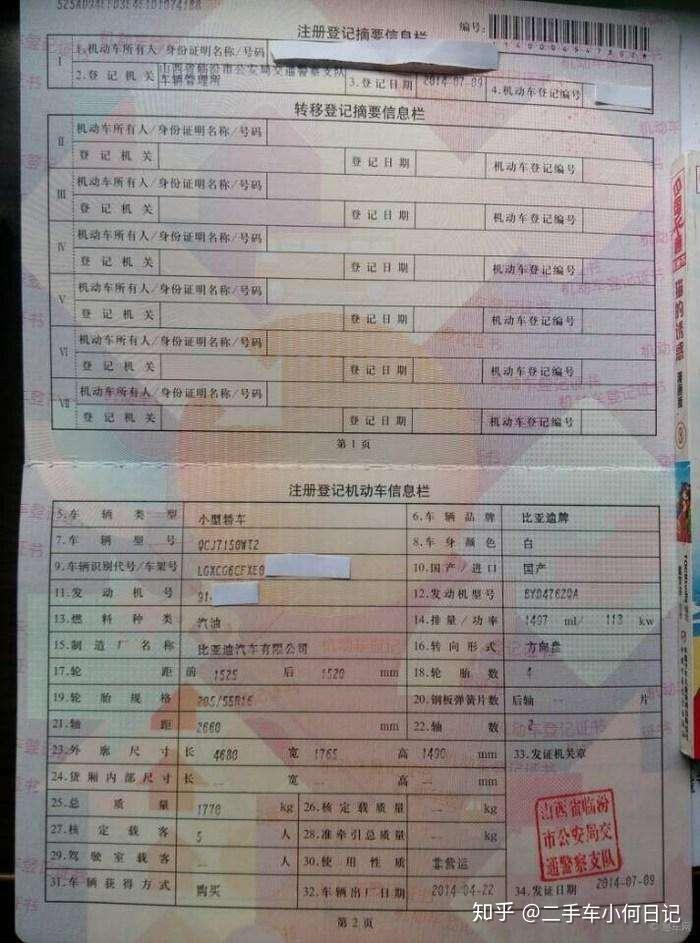 注册登记摘要信息栏
编号:
I
1.机动车所有人/身份证明名称/号码
2.登记机关 山西省临汾市公安局交通警察支队车辆管理所 3.登记日期 2014-07-09 4.机动车登记编号
转移登记摘要信息栏
II 机动车所有人/身份证明名称/号码
登记机关 登记日期 机动车登记编号
III 机动车所有人/身份证明名称/号码
登记机关 登记日期 机动车登记编号
IV 机动车所有人/身份证明名称/号码
登记机关 登记日期 机动车登记编号
V 机动车所有人/身份证明名称/号码
登记机关 登记日期 机动车登记编号
VI 机动车所有人/身份证明名称/号码
登记机关 登记日期 机动车登记编号
VII 机动车所有人/身份证明名称/号码
登记机关 登记日期 机动车登记编号
第1页
注册登记机动车信息栏
5.车辆类型 小型轿车 6.车辆品牌 比亚迪牌
7.车辆型号 QCJ7150WT2 8.车身颜色 白
9.车辆识别代号/车架号 LGXCG6CFXE0 10.国产/进口 国产
11.发动机号 91 12.发动机型号 BYD476ZQA
13.燃料种类 汽油 14.排量/功率 1497 ml/ 113 kw
15.制造厂名称 比亚迪汽车有限公司 16.转向形式 方向盘
17.轮距 前 1525 后 1520 mm 18.轮胎数 4
19.轮胎规格 205/55R16 20.钢板弹簧片数 后轴 -- 片
21.轴距 2660 mm 22.轴数 2
23.外廓尺寸 长 4680 宽 1765 高 1490 mm 33.发证机关章
24.货厢内部尺寸 长 -- 宽 -- 高 -- mm
25.总质量 1770 kg 26.核定载质量 -- kg
27.核定载客 5 人 28.准牵引总质量 -- kg
29.驾驶室载客 -- 人 30.使用性质 非营运
31.车辆获得方式 购买 32.车辆出厂日期 2014-04-22 34.发证日期 2014-07-09
山西省临汾
市公安局交
通警察支队
第2页
猫的诱惑
漫画版
3
知乎 @二手车小何日记